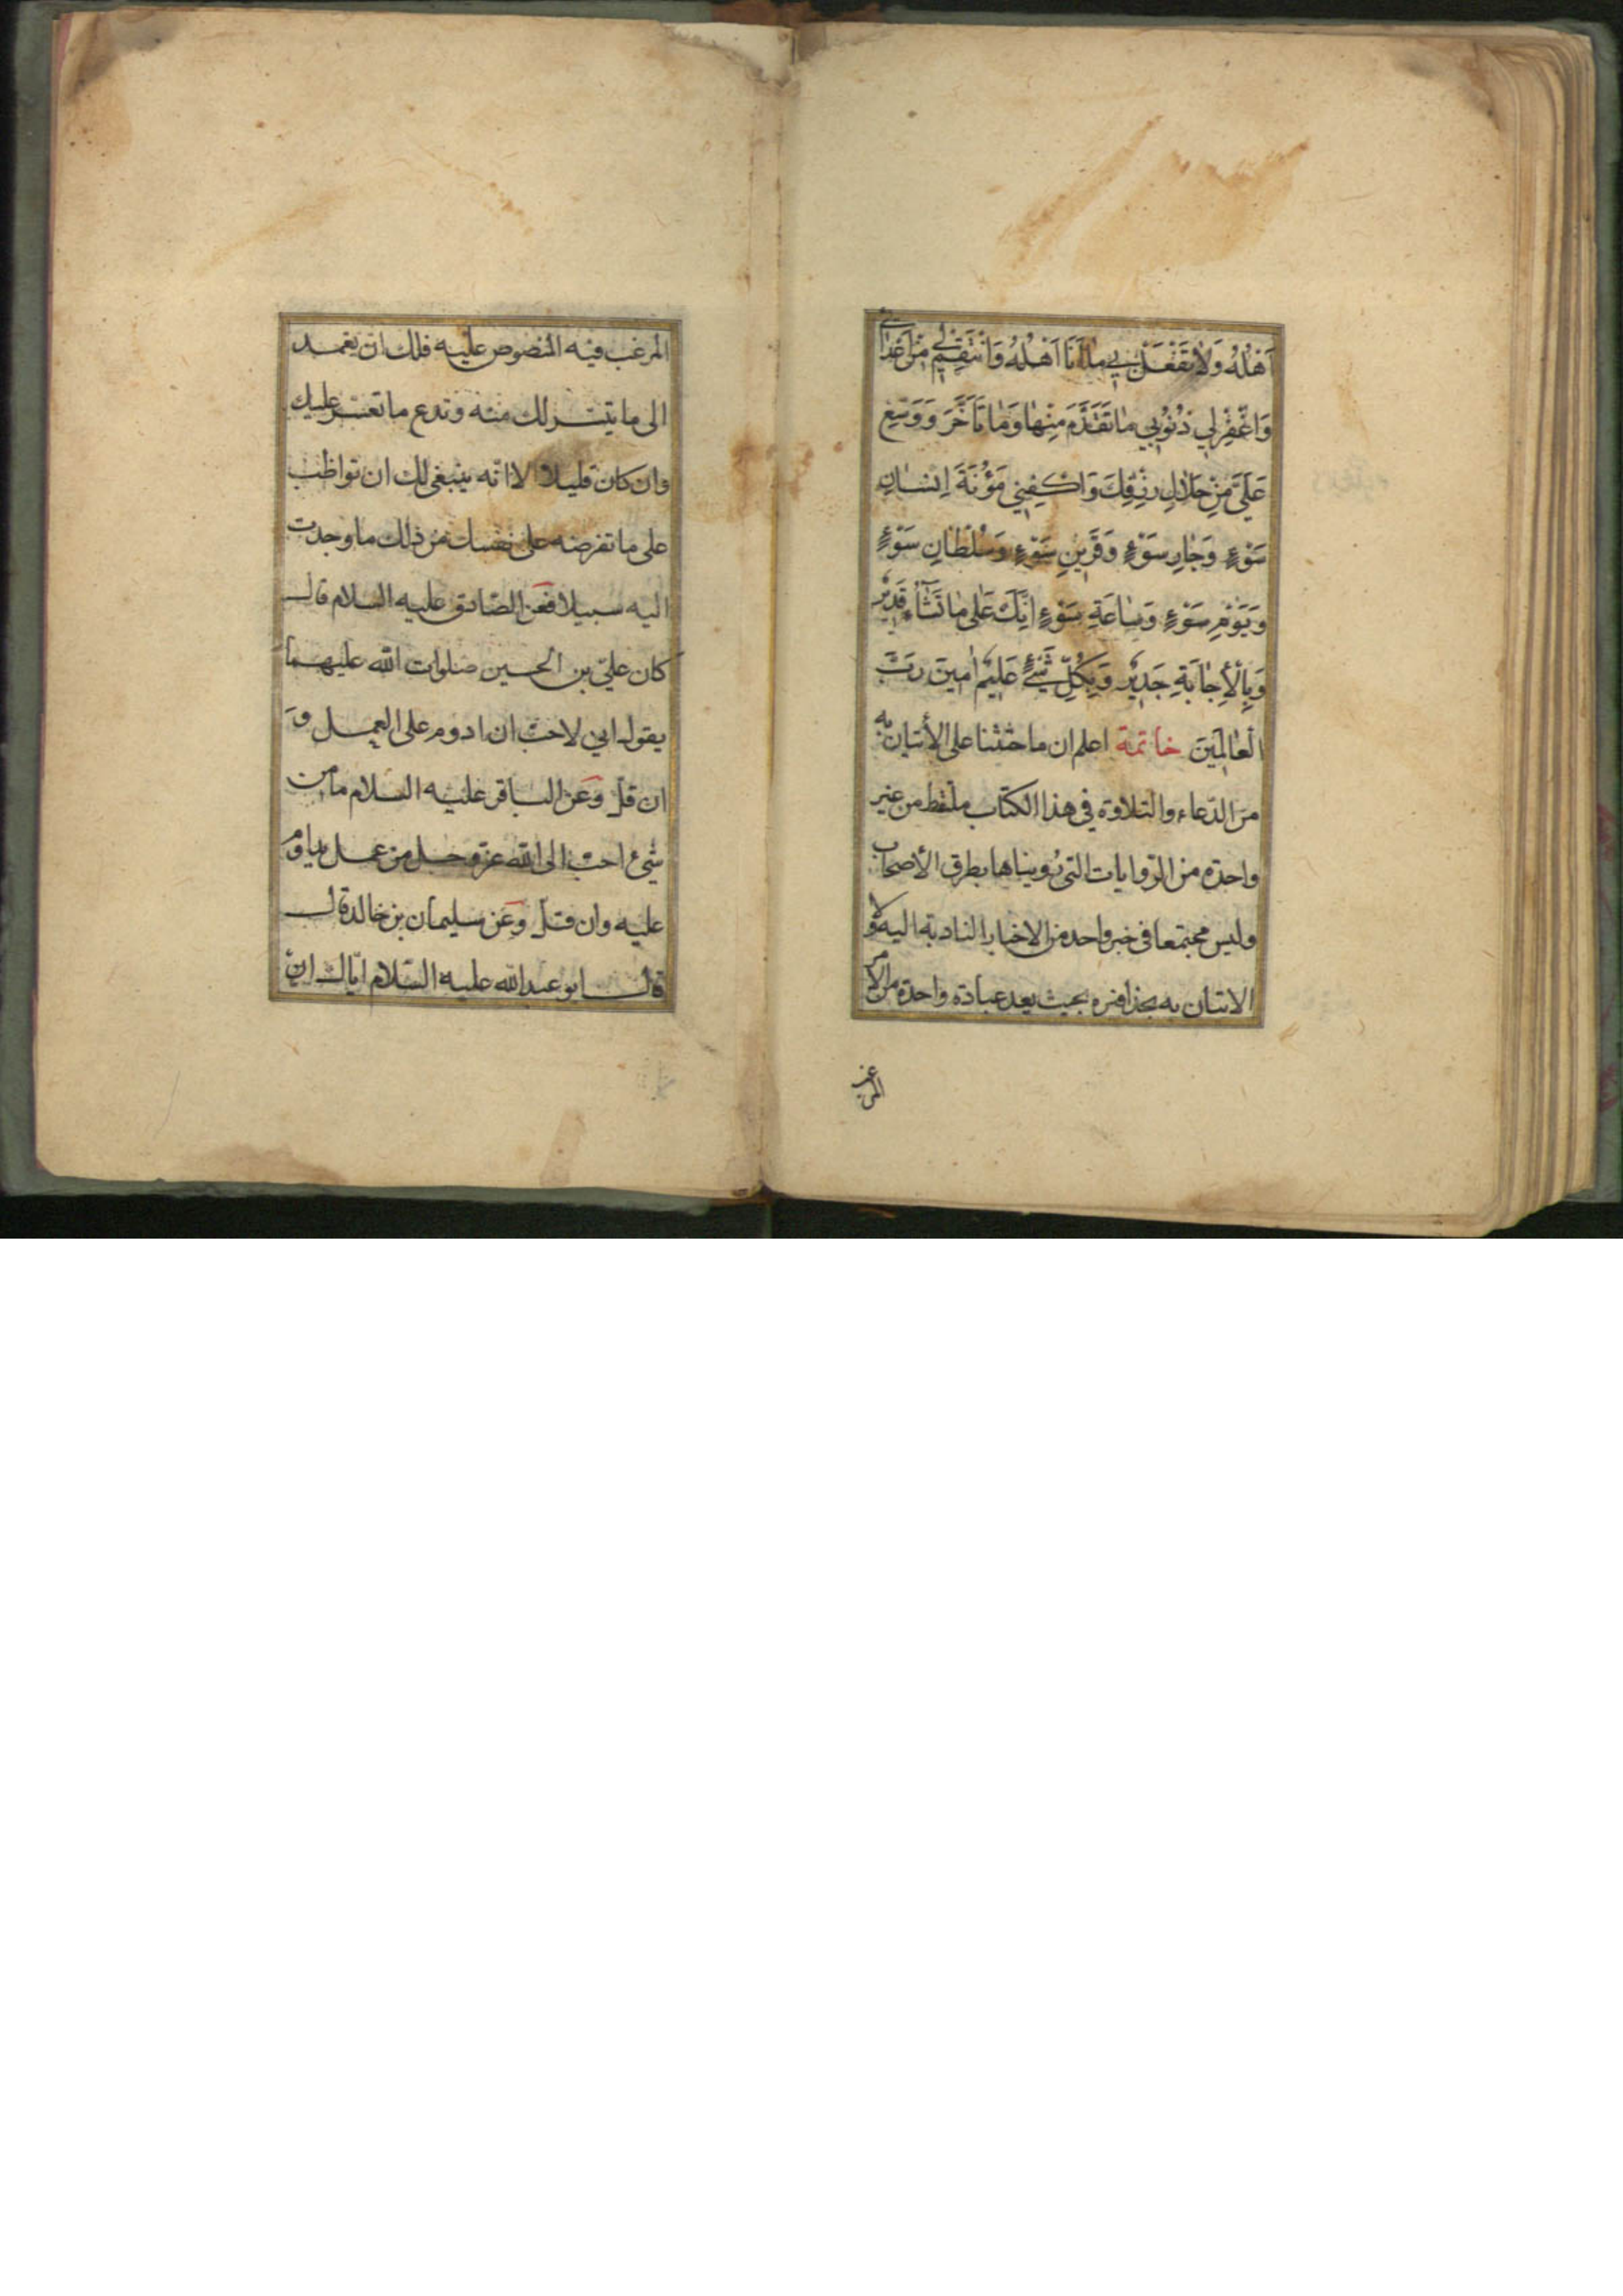 اَهْلُهُ وَلَا تَفْعَلْ بِي مَا اَنَا اَهْلُهُ وَانْتَقِمْ لِي مِنْ اَعْدَائِي
وَاغْفِرْ لِي ذُنُوبِي مَا تَقَدَّمَ مِنْهَا وَمَا تَاَخَّرَ وَوَسِّعْ
عَلَيَّ مِنْ حَلَالِ رِزْقِكَ وَاكْفِنِي مَؤُنَةَ اِنْسَانِ
سَوْءٍ وَجَارِ سَوْءٍ وَقَرِينِ سَوْءٍ وَسُلْطَانِ سَوْءٍ
وَيَوْمِ سَوْءٍ وَسَاعَةِ سَوْءٍ اِنَّكَ عَلَى مَا تَشَاءُ قَدِيرٌ
وَبِالْأِجَابَةِ جَدِيرٌ وَبِكُلِّ شَيْءٍ عَلِيمٌ اٰمِينَ رَبَّ
الْعَالَمِينَ خاتمة اعلم ان ما حثثنا على الأتيان به
من الدعاء والتلاوة في هذا الكتاب ملتقط من غير
واحدة من الروايات التي رويناها بطرق الأصحاب
وليس مجتمعا في خبر واحد من الاخبار النادبة اليه ولا
الاتيان به بحذافيره بحيث يعد عبادة واحدة من الامر
المرغب
المرغب فيه المنصوص عليه فلك ان تعمد
الى ما يتيسر لك منه وتدع ما تعسر عليك
وان كان قليلا الا انه ينبغي لك ان تواظب
على ما تفرضه على نفسك من ذلك ما وجدت
اليه سبيلا فعن الصادق عليه السلام قال
كان علي بن الحسين صلوات الله عليهما
يقول اني لاحب ان ادوم على العمل و
ان قل وعن الباقر عليه السلام ما من
شيء احب الى الله عز وجل من عمل يداوم
عليه وان قل وعن سليمان بن خالد قال
قال ابو عبد الله عليه السلام اياك ان